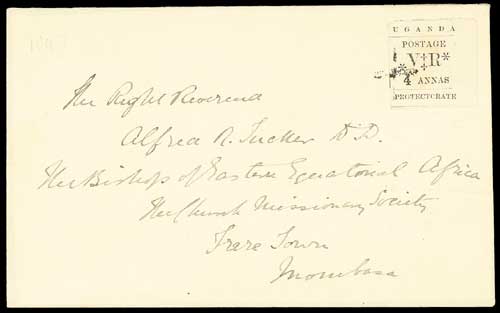 1897
UGANDA
POSTAGE
*V‡R*
*4* ANNAS
PROTECTORATE
The Right Reverend
Alfred R. Tucker D.D.
The Bishop of Eastern Equatorial Africa
The Church Missionary Society
Frere Town
Mombasa